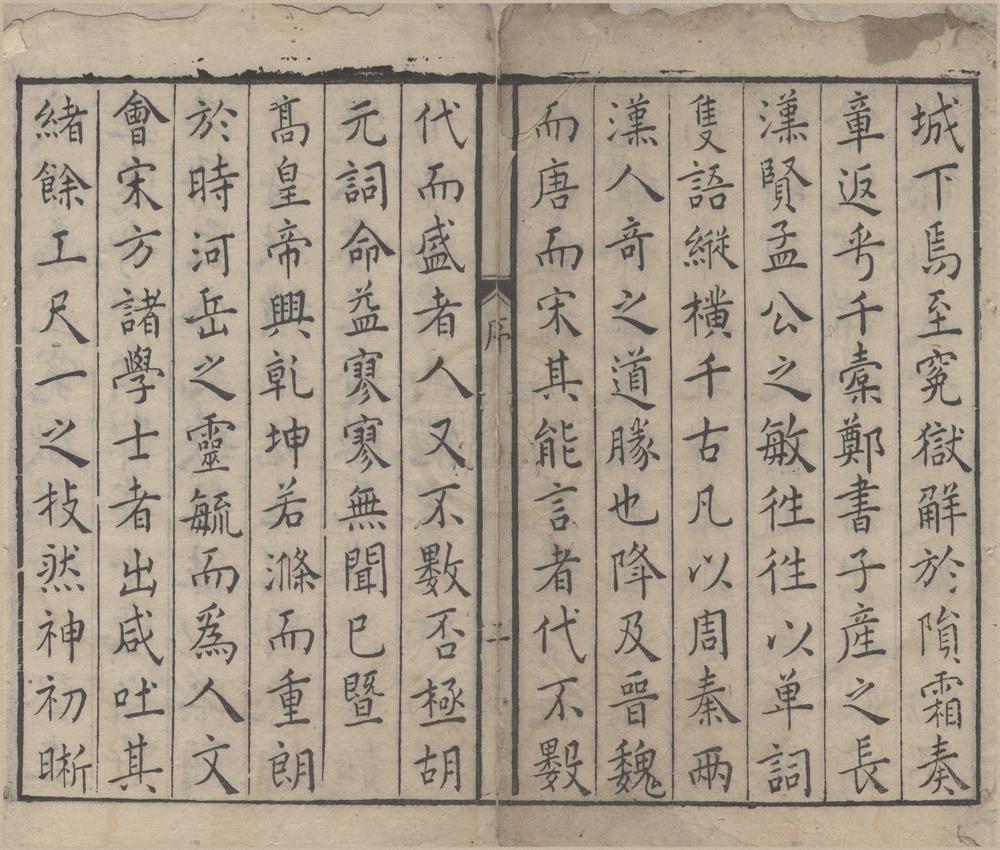 城下焉至寃獄解於隕霜奏
章返乎千槖鄭書子産之長
漢賢孟公之敏徃徃以单詞
隻語縱橫千古凡以周秦兩
漢人竒之道勝也降及晉魏
而唐而宋其能言者代不數
序
二
代而盛者人又不數否極胡
元詞命益寥寥無聞巳暨
髙皇帝興乾坤若滌而重朗
於時河岳之靈毓而爲人文
會宋方諸學士者出咸吐其
緒餘工尺一之技然神初晰